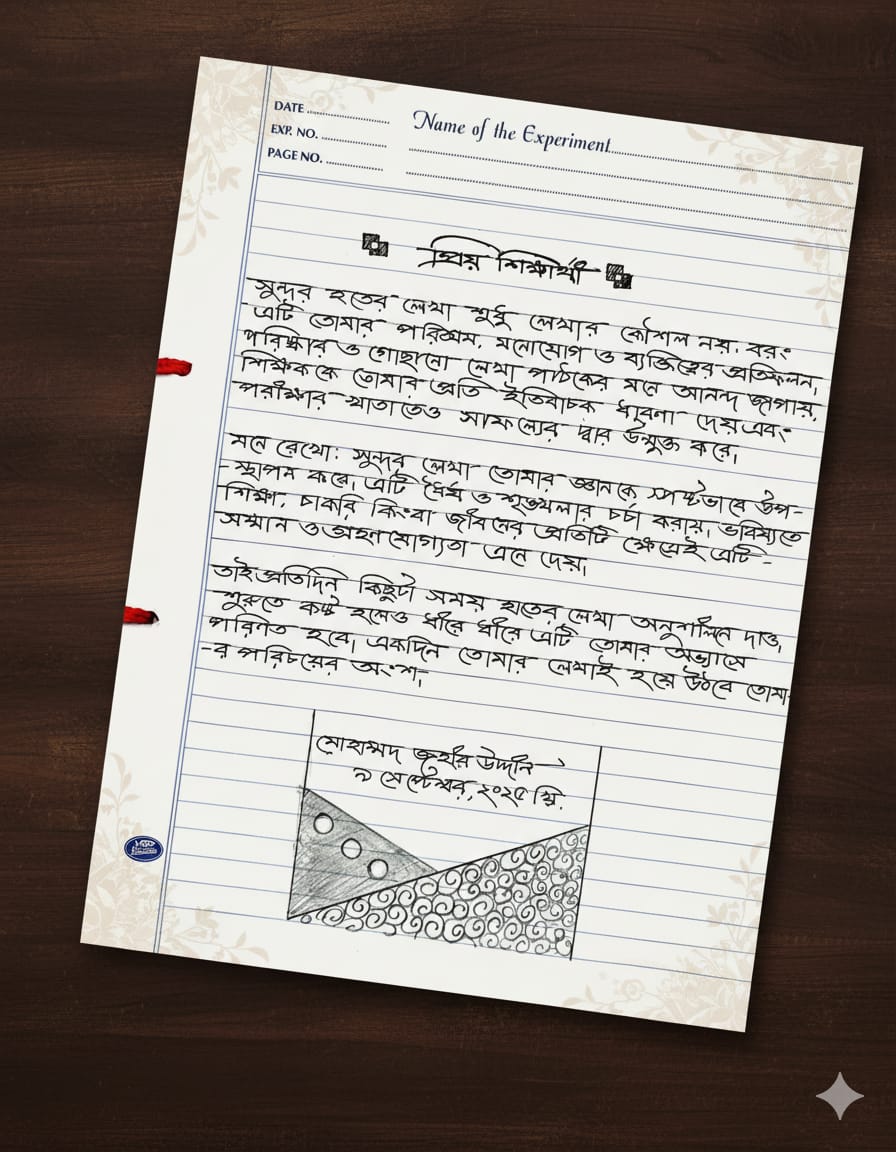 DATE
Name of the Experiment
EXP. NO.
PAGE NO.
প্রিয় শিক্ষার্থী
সুন্দর হাতের লেখা শুধু লেখার কৌশল নয়, বরং
এটি তোমার পরিশ্রম, মনোযোগ ও ব্যক্তিত্বের প্রতিফলন,
পরিষ্কার ও গোছানো লেখা পাঠকের মনে আনন্দ জাগায়,
শিক্ষককে তোমার প্রতি ইতিবাচক ধারণা দেয় এবং
পরীক্ষার খাতাতেও সাফল্যের দ্বার উন্মুক্ত করে।
মনে রেখো: সুন্দর লেখা তোমার জ্ঞানকে স্পষ্টভাবে উপ-
-স্থাপন করে। এটি ধৈর্য ও শৃঙ্খলার চর্চা করায়। ভবিষ্যতে
শিক্ষা, চাকরি কিংবা জীবনের প্রতিটি ক্ষেত্রেই এটি-
সম্মান ও গ্রহনযোগ্যতা এনে দেয়।
তাই প্রতিদিন কিছুটা সময় হাতের লেখা অনুশীলনে দাও,
শুরুতে কষ্ট হলেও ধীরে ধীরে এটি তোমার অভ্যাসে
পরিণত হবে। একদিন তোমার লেখাই হয়ে উঠবে তোমা-
-র পরিচয়ের অংশ,
মোহাম্মদ জহীর উদ্দীন
৯ সেপ্টেম্বর, ২০২৫ খ্রি.